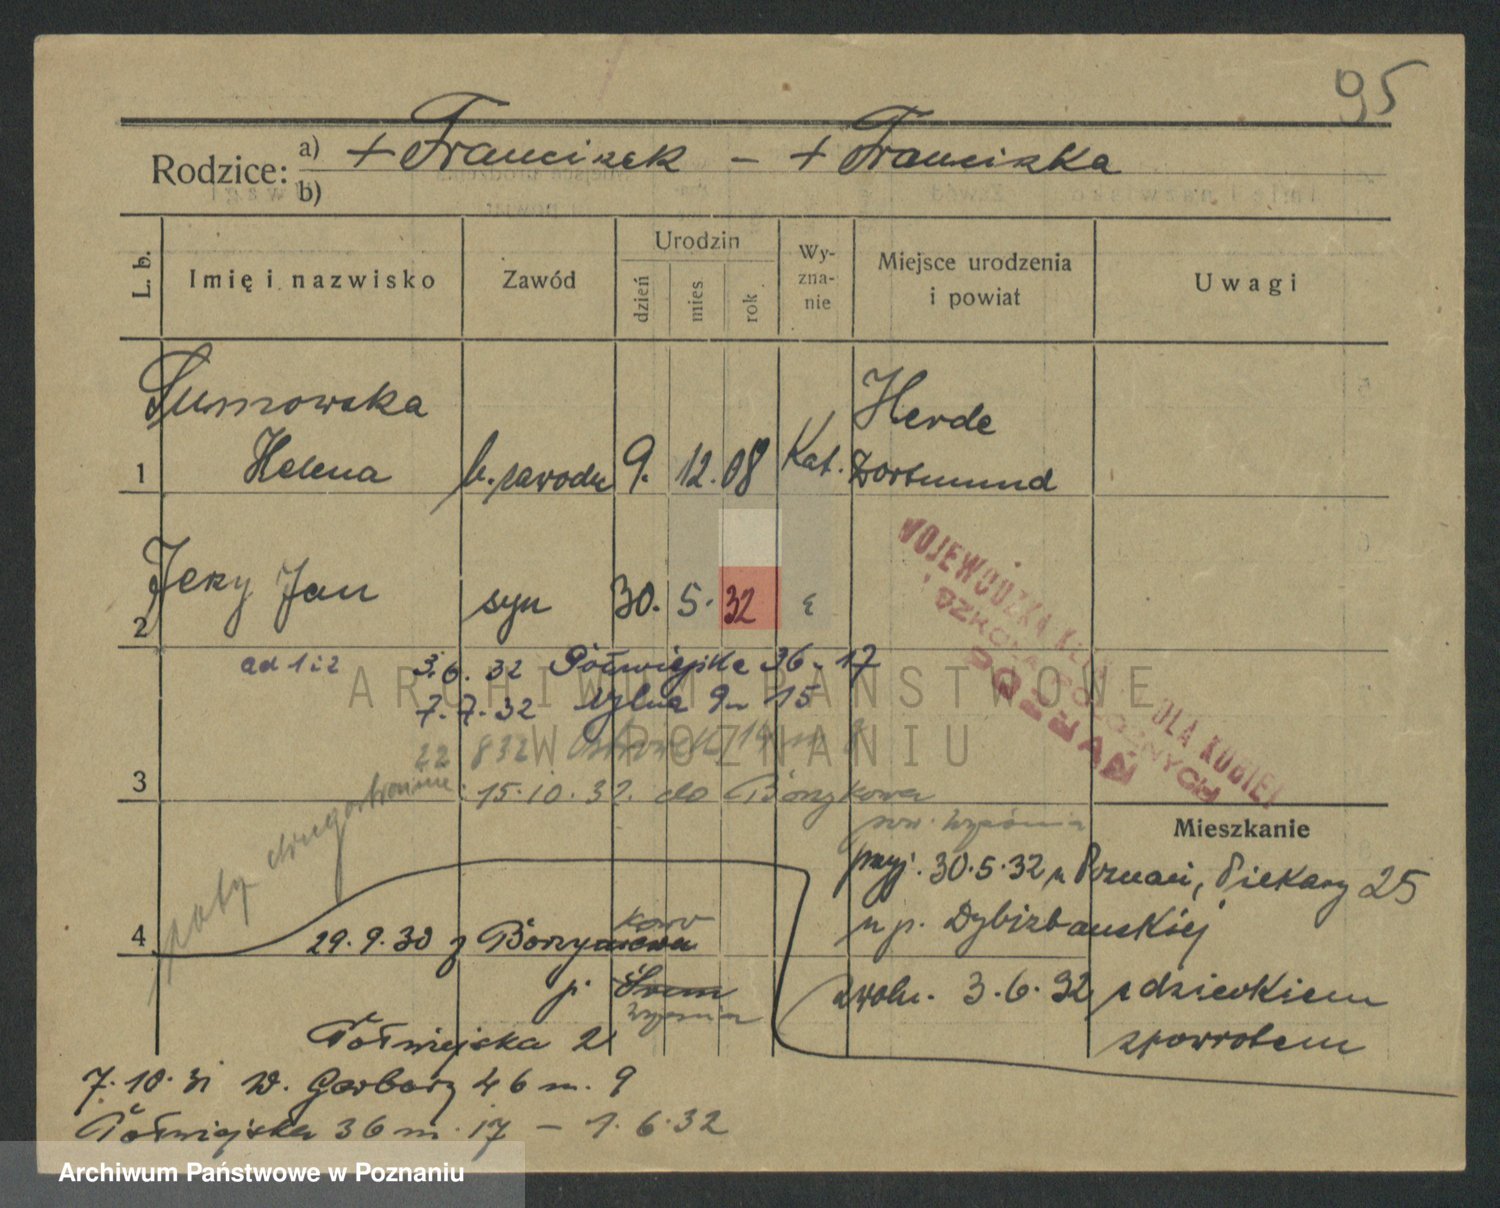 95
Rodzice: a) + Franciszek – + Franciszka
b)
L. b.
Imię i nazwisko
Zawód
Urodzin
dzień
mies
rok
Wy-
zna-
nie
Miejsce urodzenia
i powiat
Uwagi
Sumowska
Helena
1
b. zawodu
9. 12. 08
Kat.
Herde
Dortmund
Jerzy Jan
2
syn
30. 5. 32
WOJEWÓDZKA DLA KOBIET
POZNAŃ
ad 1 i 2 3.6.32 Półwiejska 36 - 17
7.7.32 9 15
22 8 32
3
15.10.32. do
Mieszkanie
przyj. 30.5.32 Poznań, Piekary 25
4
29.9.30 z
u p. Dybizbańskiej
p. Śrem
zwoln. 3.6.32 z dzieckiem
zpowrotem
Półwiejska 2
7.10.31 W. Garbary 46 m. 9
Półwiejska 36 m. 17 – 1.6.32
ARCHIWUM PAŃSTWOWE
W POZNANIU
Archiwum Państwowe w Poznaniu